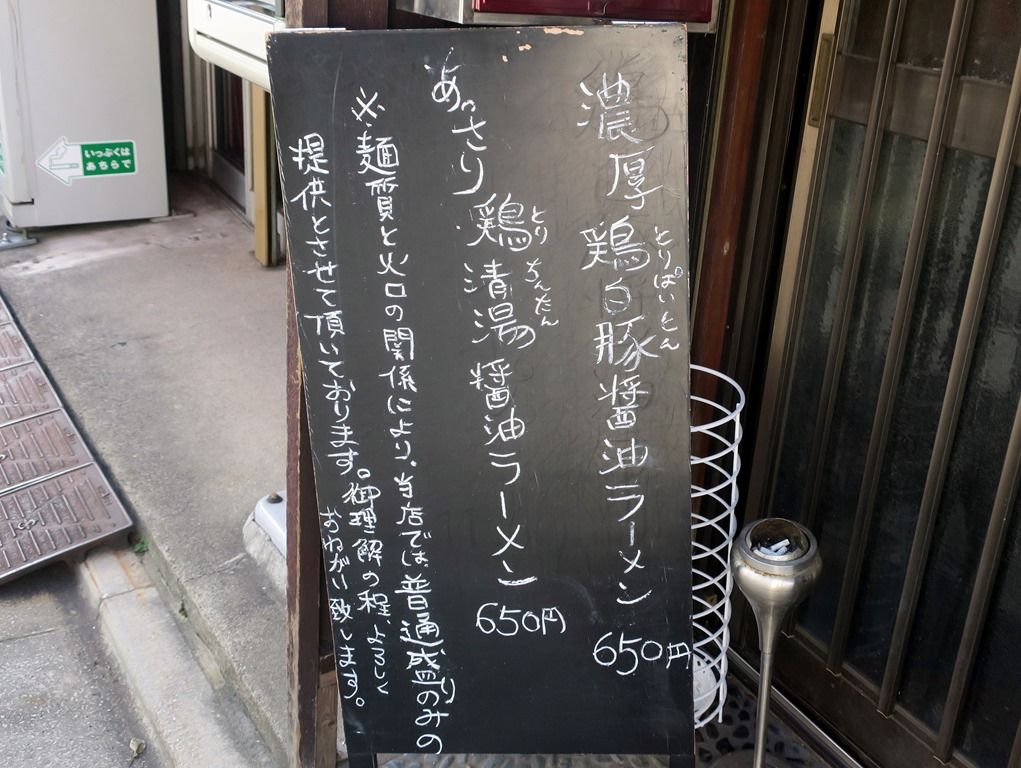 濃厚鶏白豚醤油ラーメン 650円
とりぱいとん
あっさり鶏清湯醤油ラーメン 650円
とりちんたん
※麺質と火口の関係により、当店では、普通盛りのみの
提供とさせて頂いております。御理解の程、よろしく
おねがい致します。
いっぷくは
あちらで